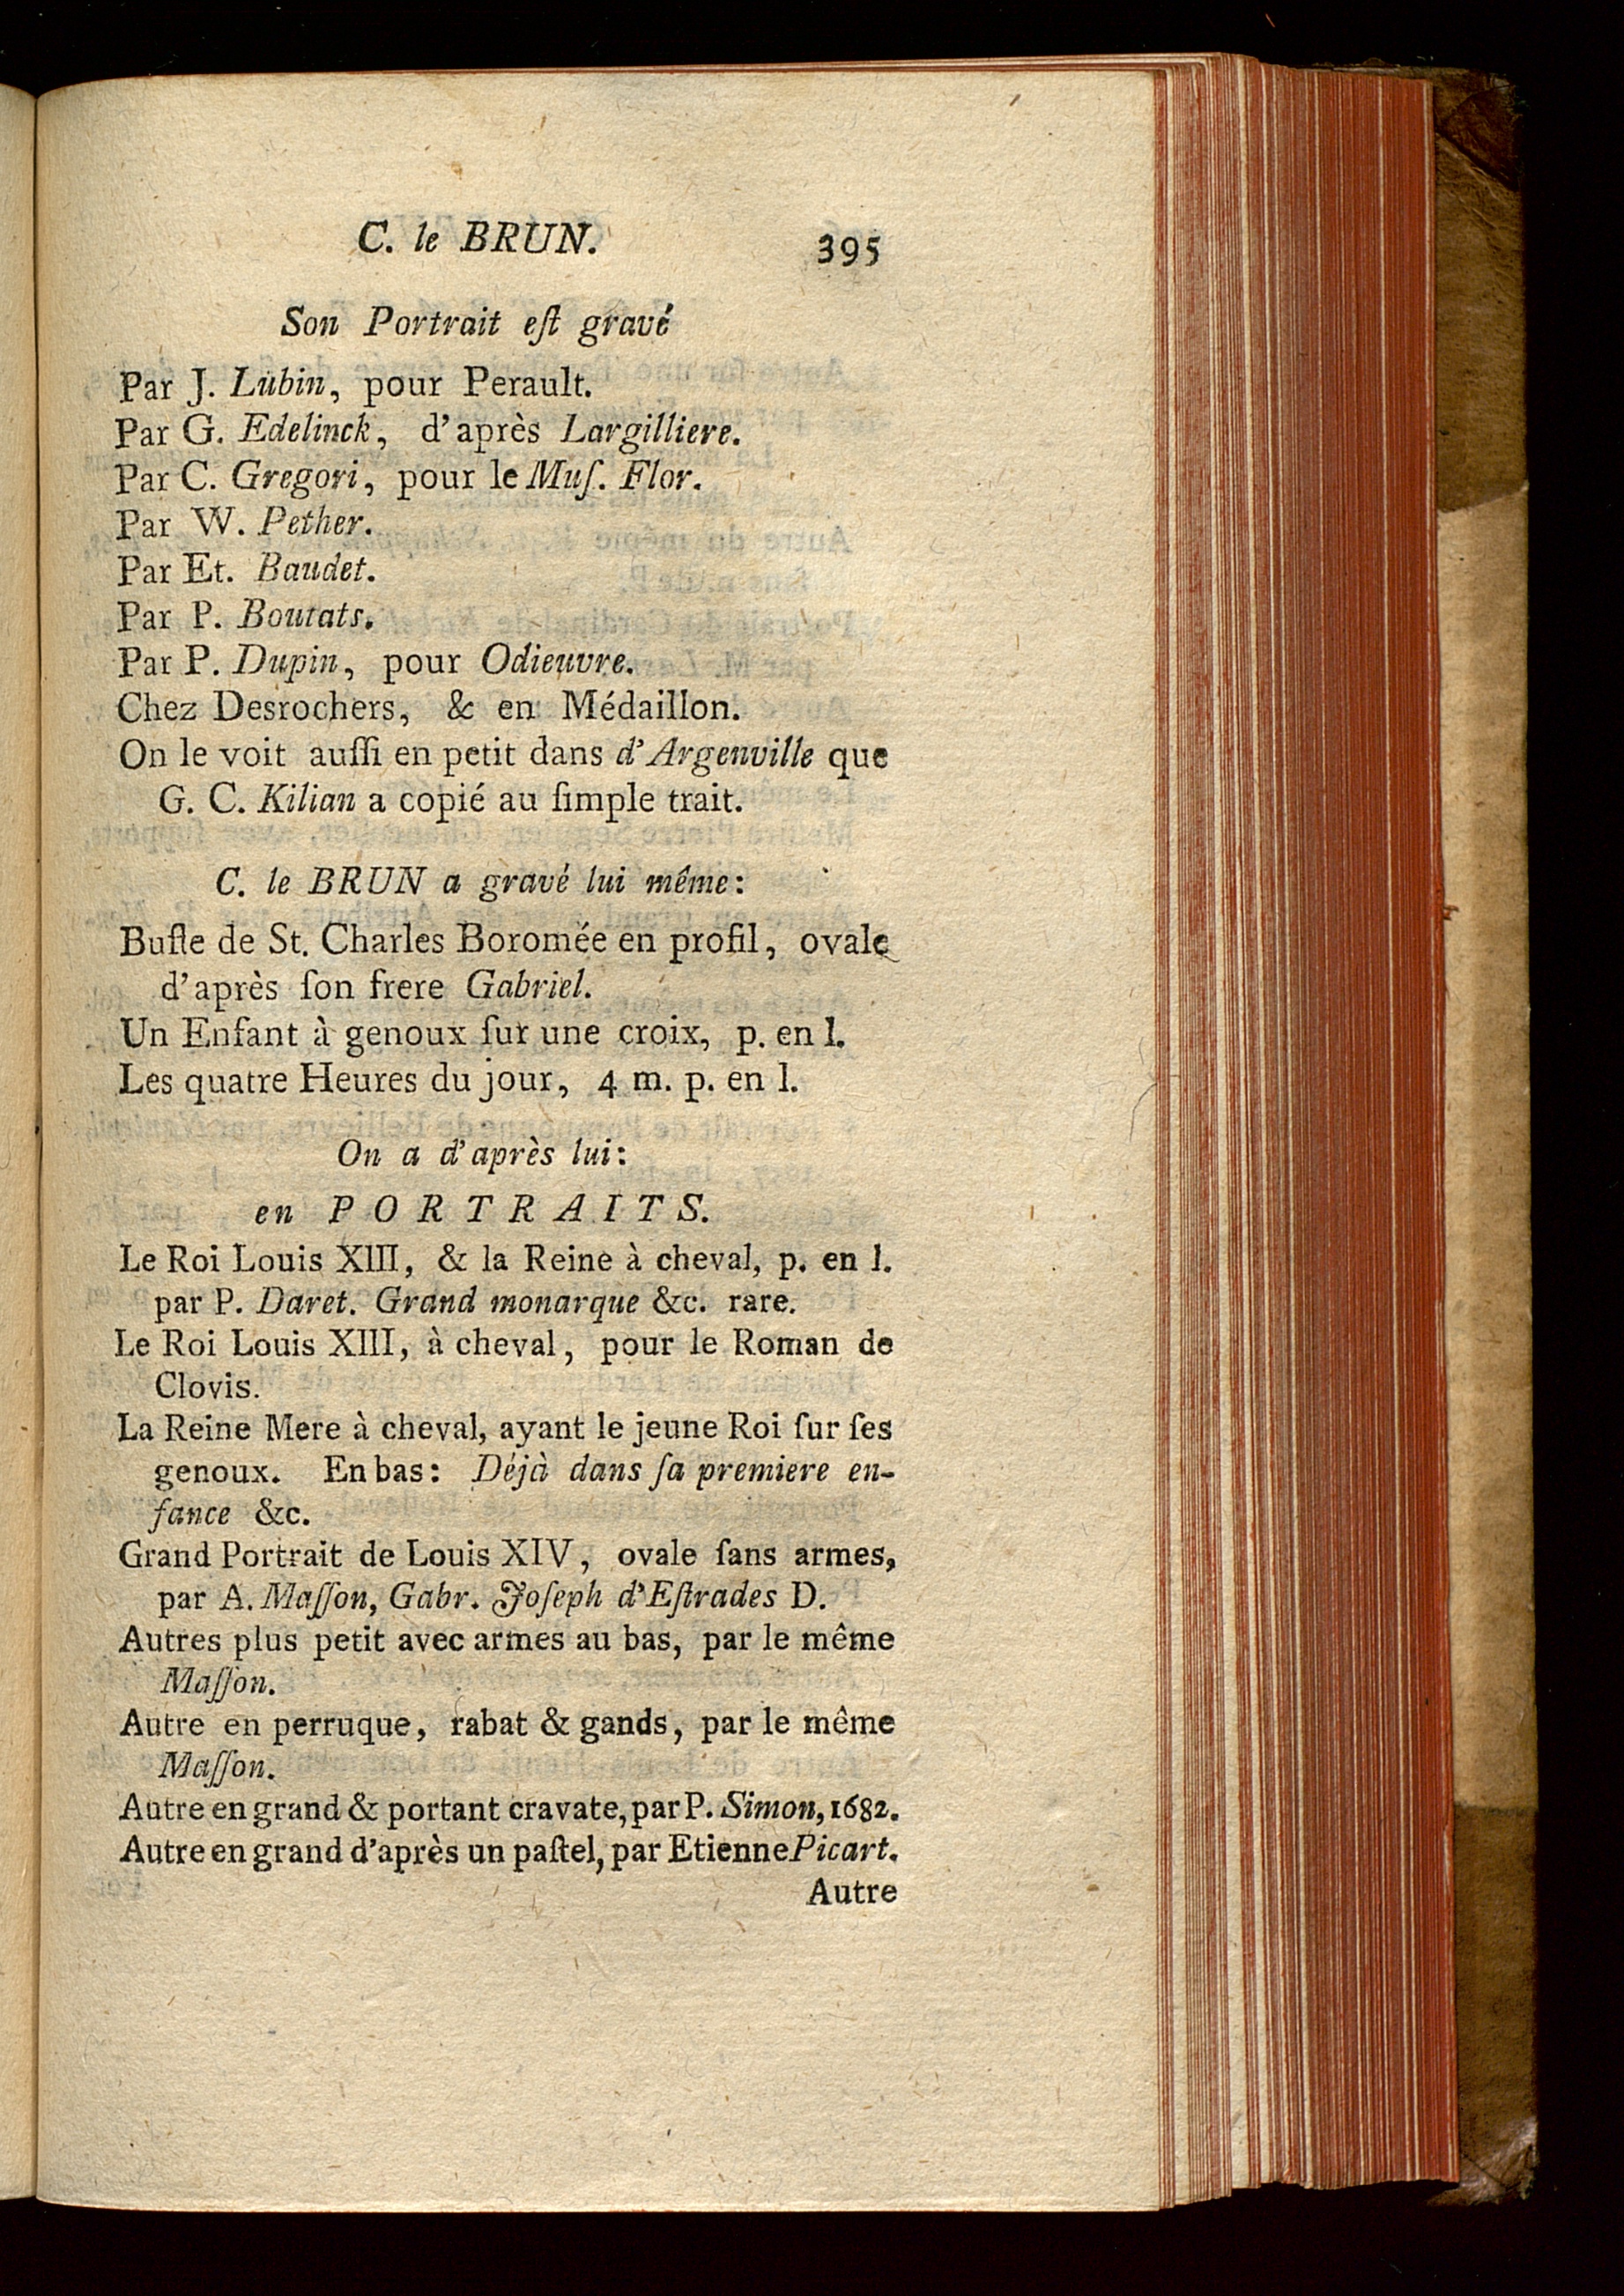 C. le BRUN. 395
Son Portrait eſt gravé
Par J. Lubin, pour Perault.
Par G. Edelinck, d'après Largilliere.
Par C. Gregori, pour le Muſ. Flor.
Par W. Pether.
Par Et. Baudet.
Par P. Boutats.
Par P. Dupin, pour Odieuvre.
Chez Desrochers, & en Médaillon.
On le voit auſſi en petit dans d'Argenville que
G. C. Kilian a copié au ſimple trait.
C. le BRUN a gravé lui même:
Buſte de St. Charles Boromée en profil, ovale
d'après ſon frere Gabriel.
Un Enfant à genoux ſur une croix, p. en l.
Les quatre Heures du jour, 4 m. p. en l.
On a d'après lui:
en PORTRAITS.
Le Roi Louis XIII, & la Reine à cheval, p. en l.
par P. Daret. Grand monarque &c. rare.
Le Roi Louis XIII, à cheval, pour le Roman de
Clovis.
La Reine Mere à cheval, ayant le jeune Roi ſur ſes
genoux. En bas: Déjà dans ſa premiere en-
fance &c.
Grand Portrait de Louis XIV, ovale ſans armes,
par A. Maſſon, Gabr. Joſeph d'Eſtrades D.
Autres plus petit avec armes au bas, par le même
Maſſon.
Autre en perruque, rabat & gands, par le même
Maſſon.
Autre en grand & portant cravate, par P. Simon, 1682.
Autre en grand d'après un paſtel, par Etienne Picart.
Autre